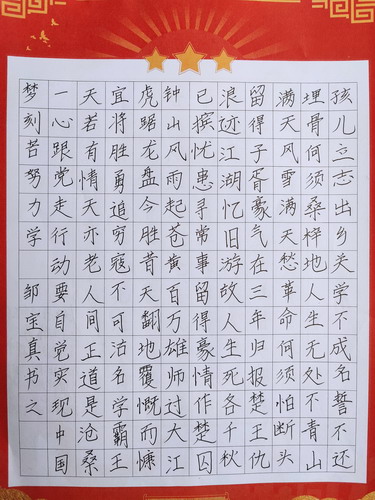 孩儿立志出乡关学不成名誓不还
埋骨何须桑梓地人生无处不青山
满天风雪满天愁革命何须怕断头
留得子胥豪气在三年归报楚王仇
浪迹江湖忆旧游故人生死各千秋
已摈忧患寻常事留得豪情作楚囚
钟山风雨起苍黄百万雄师过大江
虎踞龙盘今胜昔天翻地覆慨而慷
宜将胜勇追穷寇不可沽名学霸王
天若有情天亦老人间正道是沧桑
一心跟党走行动要自觉实现中国
梦刻苦努力学 邹宝真书之